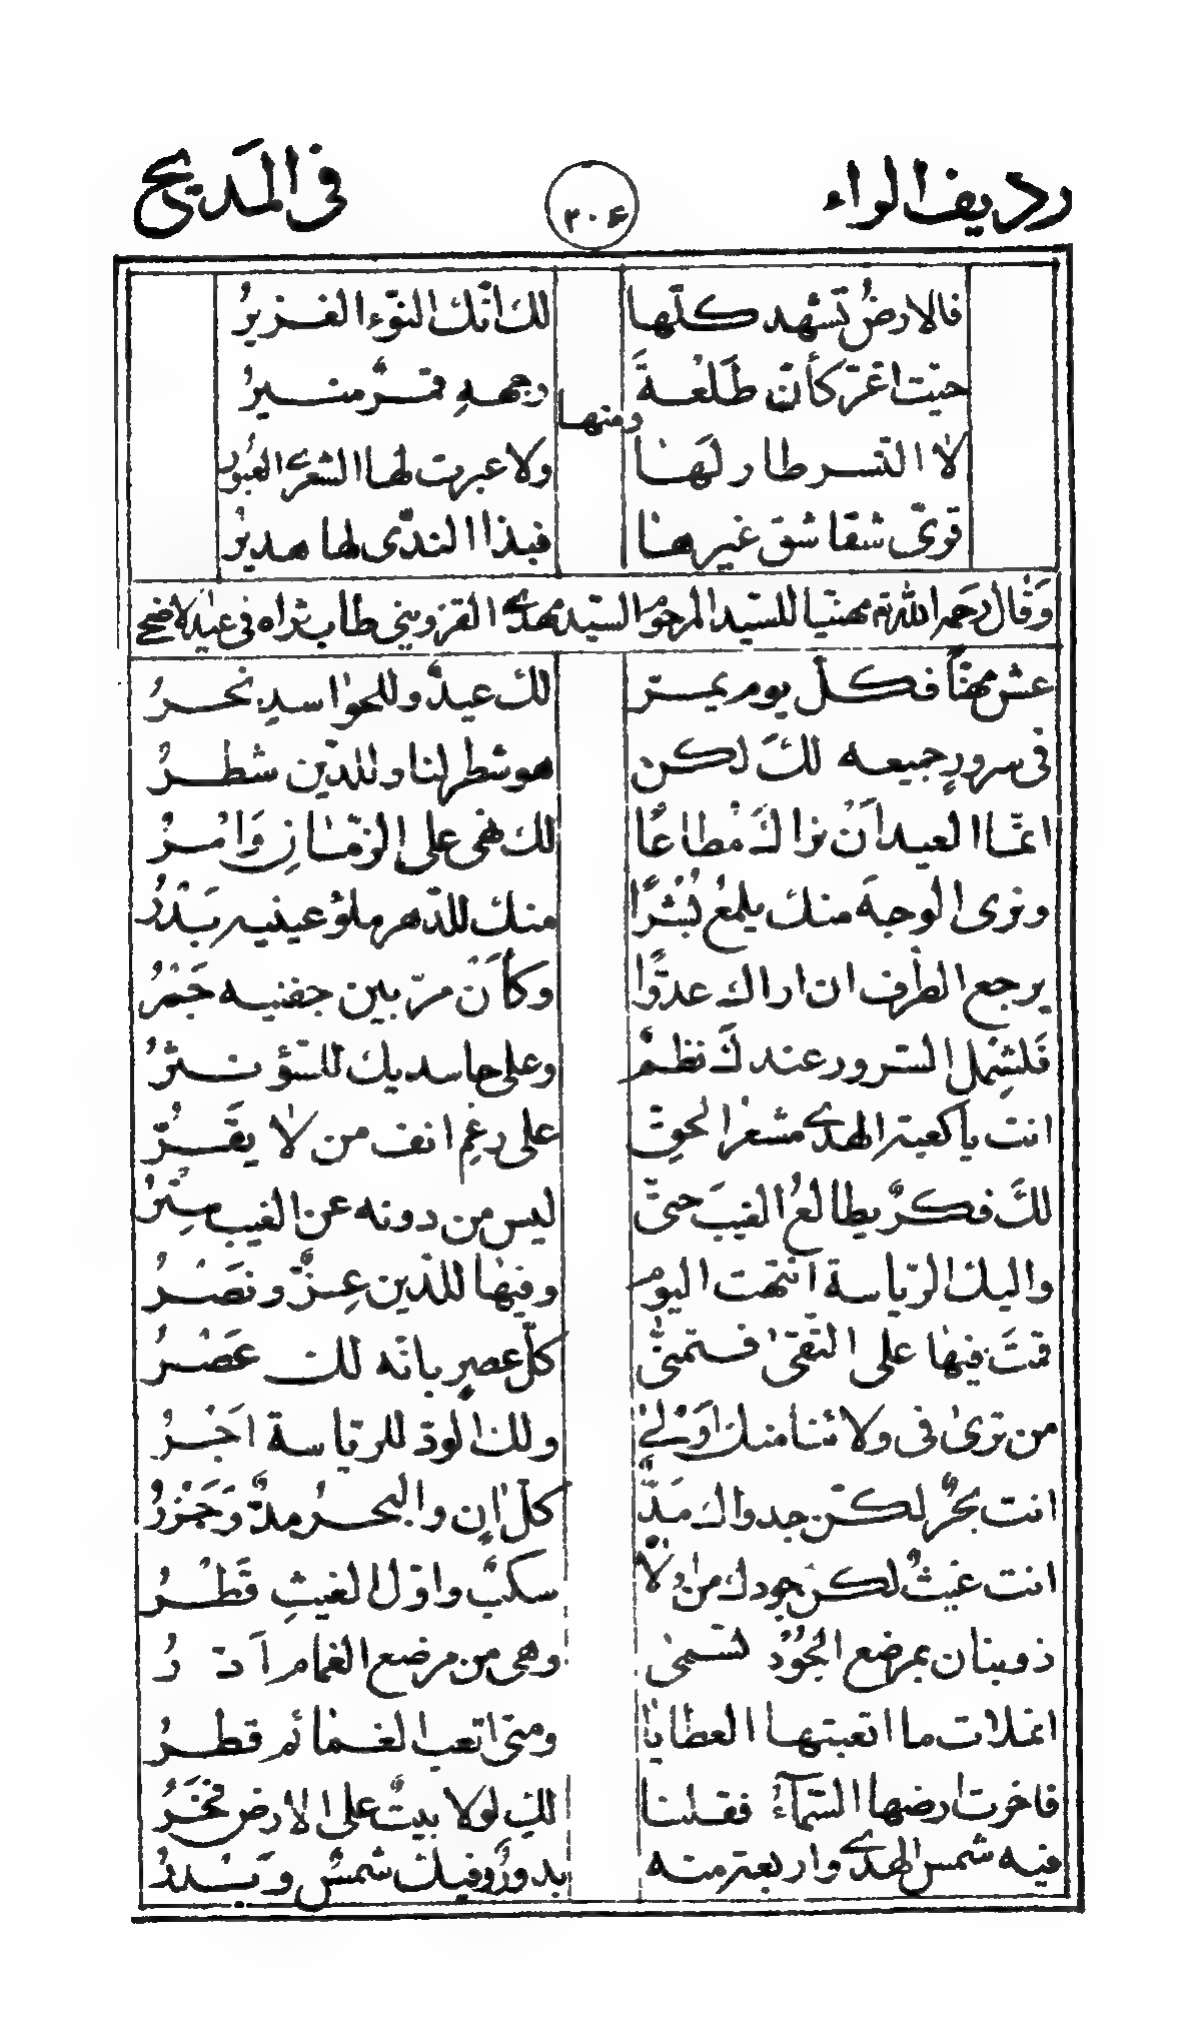 رديف الراء ٢٠۴ في المديح
فالارضُ تَشهد كلّها لك انّك النّوء الغزيرُ
حيّت اغرّ كأنّ طَلْعةَ وجههِ قمرٌ منيرُ
ومنها
لا النسر طار لَهَا ولا عبرت لها الشعرى العَبُور
قوىّ شقاشق غيرها فبذا الندّى لها هديرُ
وَقال رحمه الله تم مهنّيا للسّيد المرحوم السّيد مهدى القزويني طاب ثراه في عيد الاضحى
عش مهنّأً فكلّ يوم يمرّ لك عيدٌ وللحواسدِ نحرُ
في سرورٍ جميعه لكَ لكن هو شطر لنا وللدّين شطرُ
انمّا العيد اَنْ نراكَ مُطاعًا لك نهى على الزّمَانِ وَاَمْرُ
ونرى الوجهَ منك يلمعُ بُشْرًا منك للدّهر ملؤ عينيه بَدْرُ
يرجع الطرف ان اراك عدوًّا وكأَنْ مرّ بين جفنيه جَمْرُ
فَلِشمْلِ السّرور عندكَ نظمٌ وعلى حاسديك للسّؤ نثرُ
انت ياكعبة الهدى مشعرُ الحقّ على رغمِ انف من لا يقَرُّ
لكَ فكرٌ يطالعُ الغيبَ حتّى ليس من دونه عن الغيب سِتْرُ
واليك الرّياسة انتهت اليوم وفيها للدّين عِزٌّ ونصْرُ
قمتَ فيها على التّقى فتمنّى كلّ عصرٍ بانّه لك عَصْرُ
من ترى في ولائنا منك اَوْلىٰ ولك الودّ للرّياسة اَجْرُ
انت بحْرٌ لكن جدواك مَدٌّ كلّ اٰنٍ والبحرُ مدٌّ وَجَزْرُ
انت غيثٌ لكن جودك مَن والا سكبٌ واوّل الغيثِ قَطْرُ
ذو بنان بمرضع الجُوْد تسمى وهى من مرضع الغمام اَدَرُّ
انملات ما اتعبتها العطايا ومتى اتعب الغمائم قطرُ
فاخرت ارضها السّمآءُ فقلنا لكِ لولا بيتٌ على الارض فخَرُ
فيه شمس الهدى واربعة منه بدورٌ وفيك شمسٌ وبَدْرُ